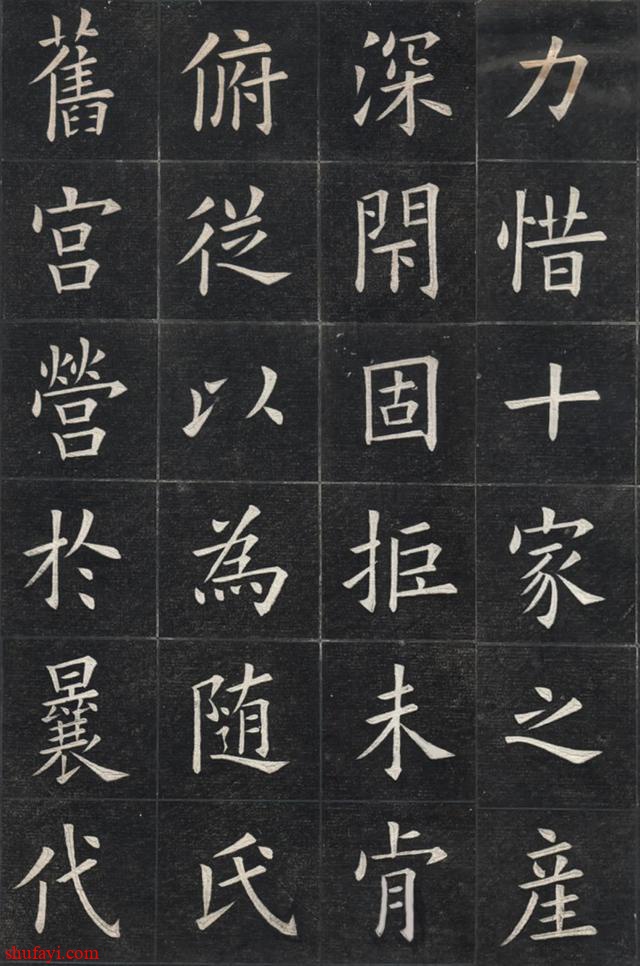 力惜十家之産
深閇固拒未肯
俯從以為随氏
舊宫營於曩代
shufayi.com